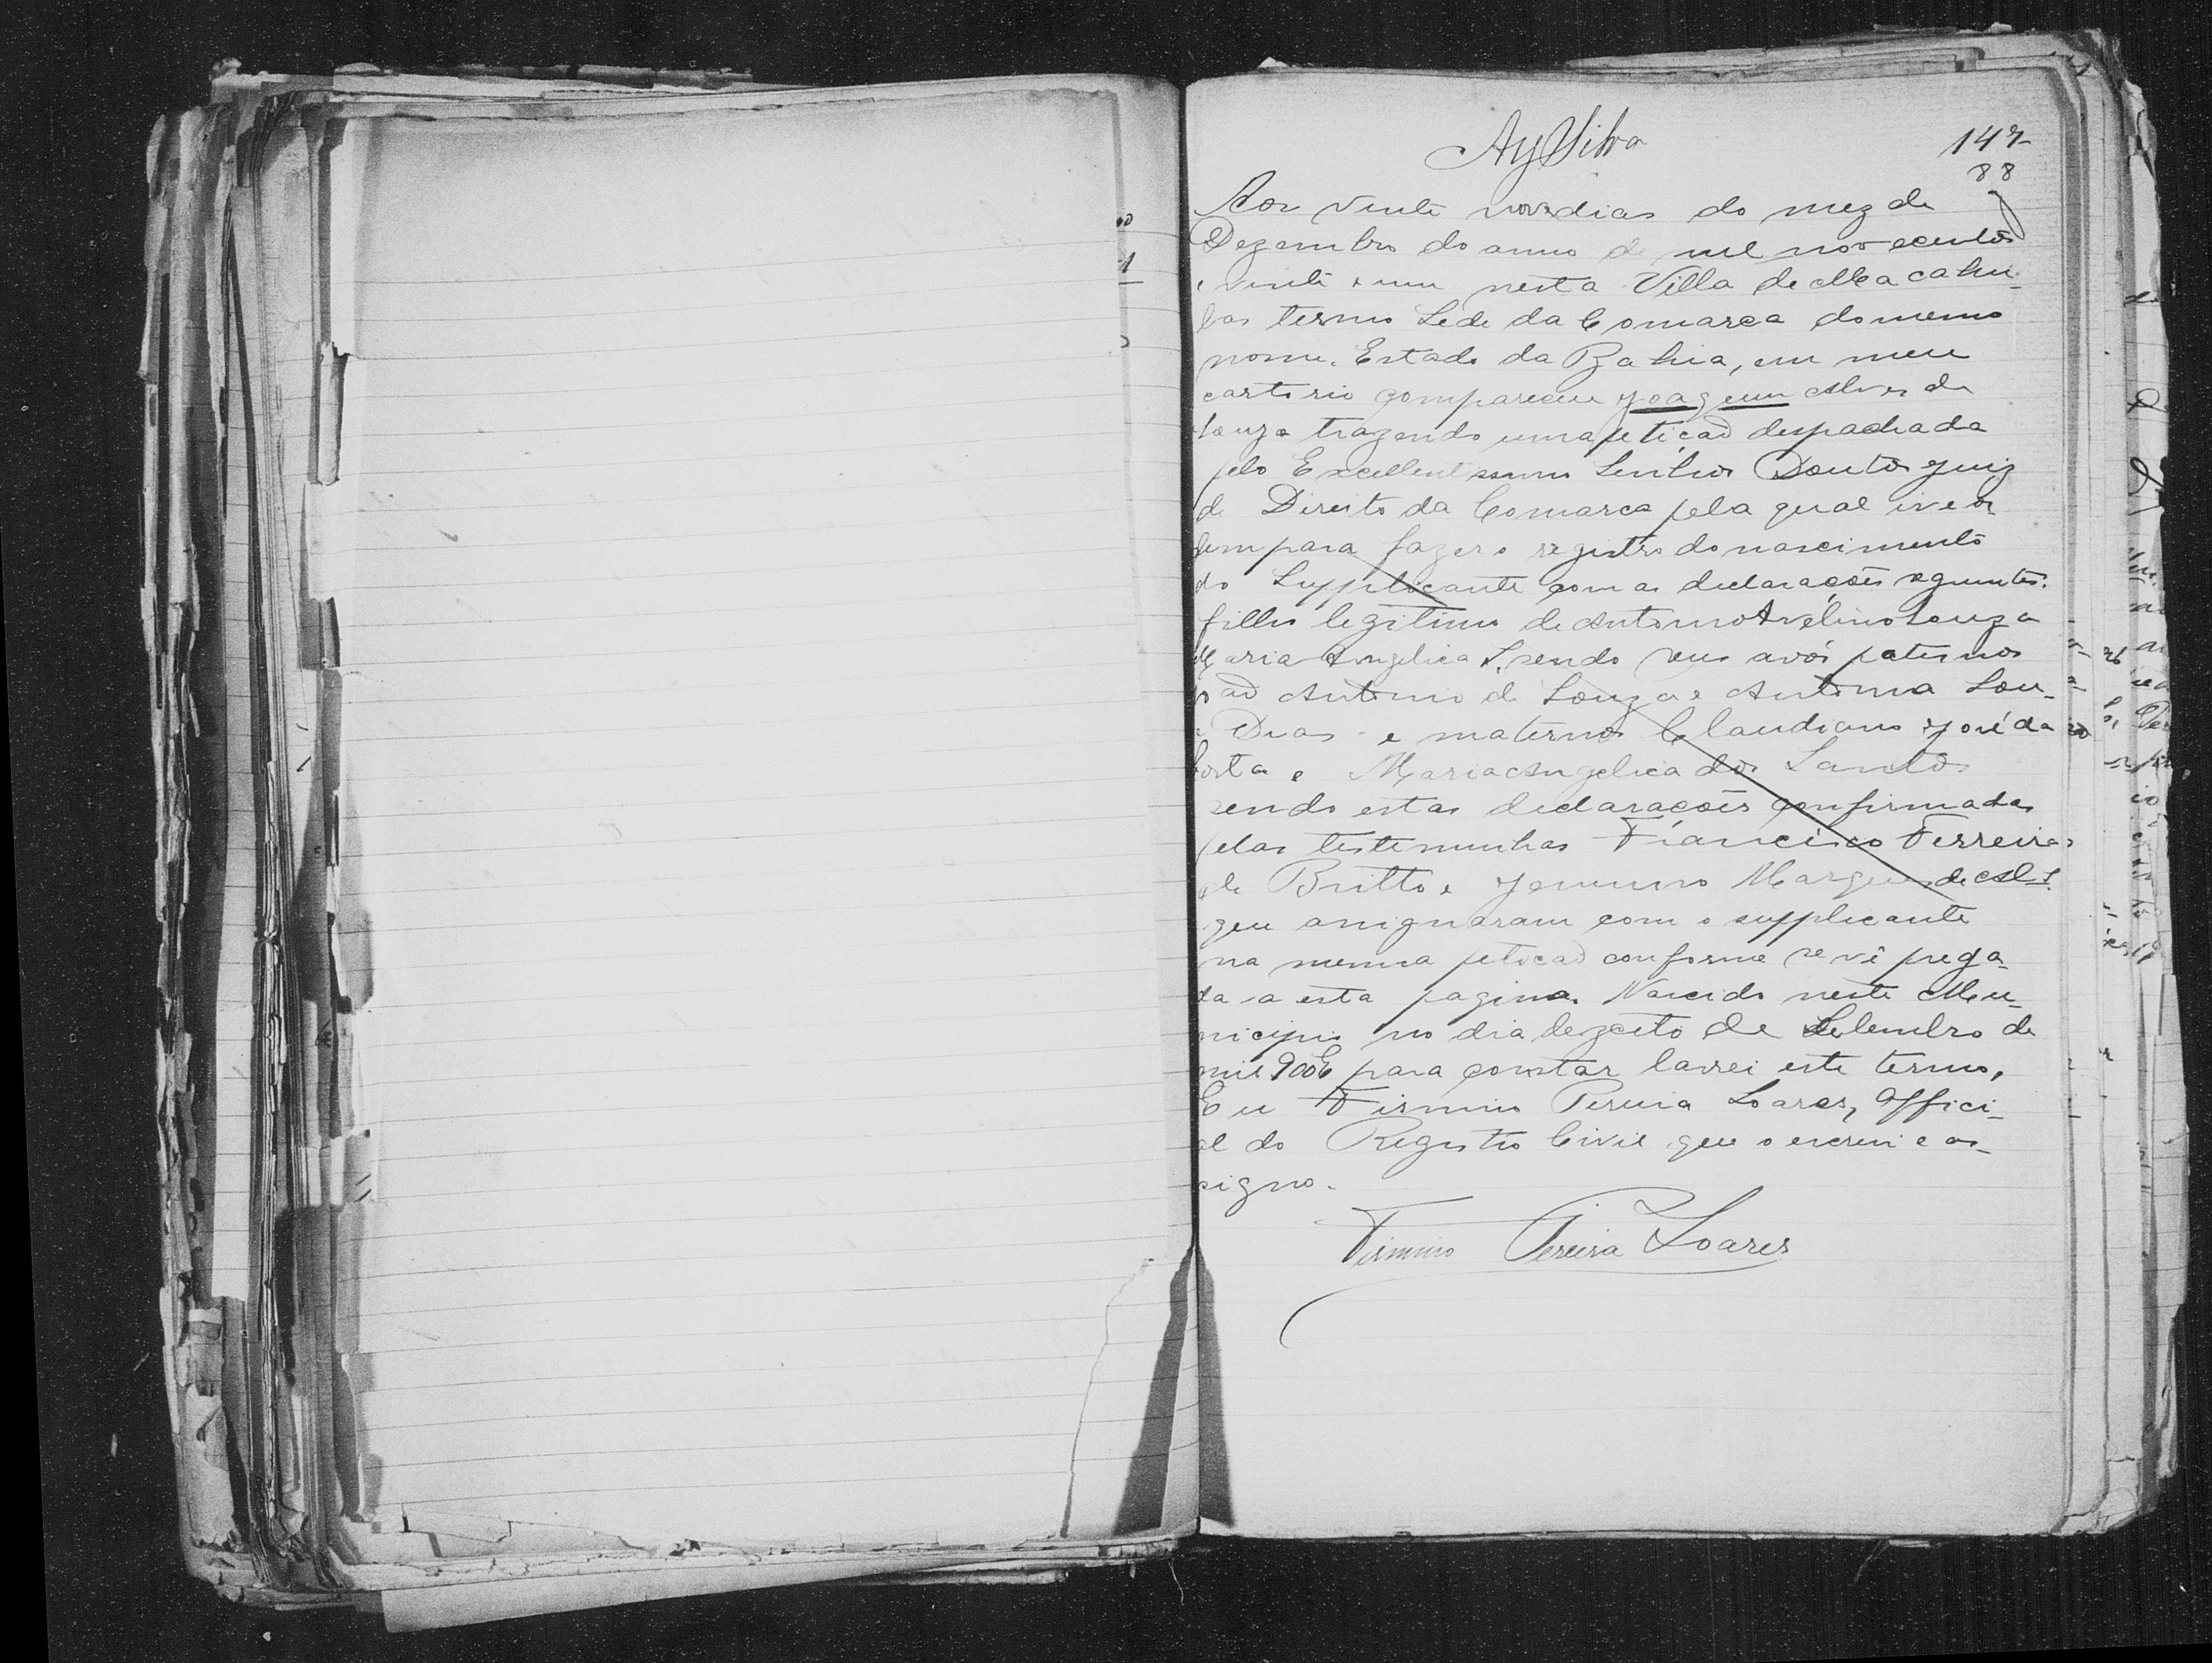 AySilva
147
88
Aos vinte nove dias do mez de
Dezembro do anno de mil novecentos
e vinte e um nesta Villa de Macahu-
bas termo Séde da Comarca do mesmo
nome. Estado da Bahia, em meu
cartorio compareceu Joaquim Alves de
Souza trazendo uma petição despachada
pelo Excellentissimo Senhor Doutor Juiz
de Direito da Comarca pela qual tive or
dem para fazer o registro do nascimento
do Supplicante com as declarações seguintes:
filho legitimo de Antonio Avelino Souza
Maria Angelica S. sendo seus avós paternos
João Antonio de Souza e Antonia Sou-
Dias e maternos Claudiano José da
Costa e Maria Angelica dos Santos
sendo estas declarações confirmadas
pelas testemunhas Francisco Ferreira
de Britto e Januario Marques de
que assignaram com o supplicante
na mesma petição conforme se vê prega-
da a esta pagina. Nascido neste Mu-
nicipio no dia dezoito de Setembro de
mil 900 E para constar lavrei este termo,
Eu Firmino Pereira Soares, Offici-
al do Registro Civil que o escrevi e as-
signo.
Firmino Pereira Soares